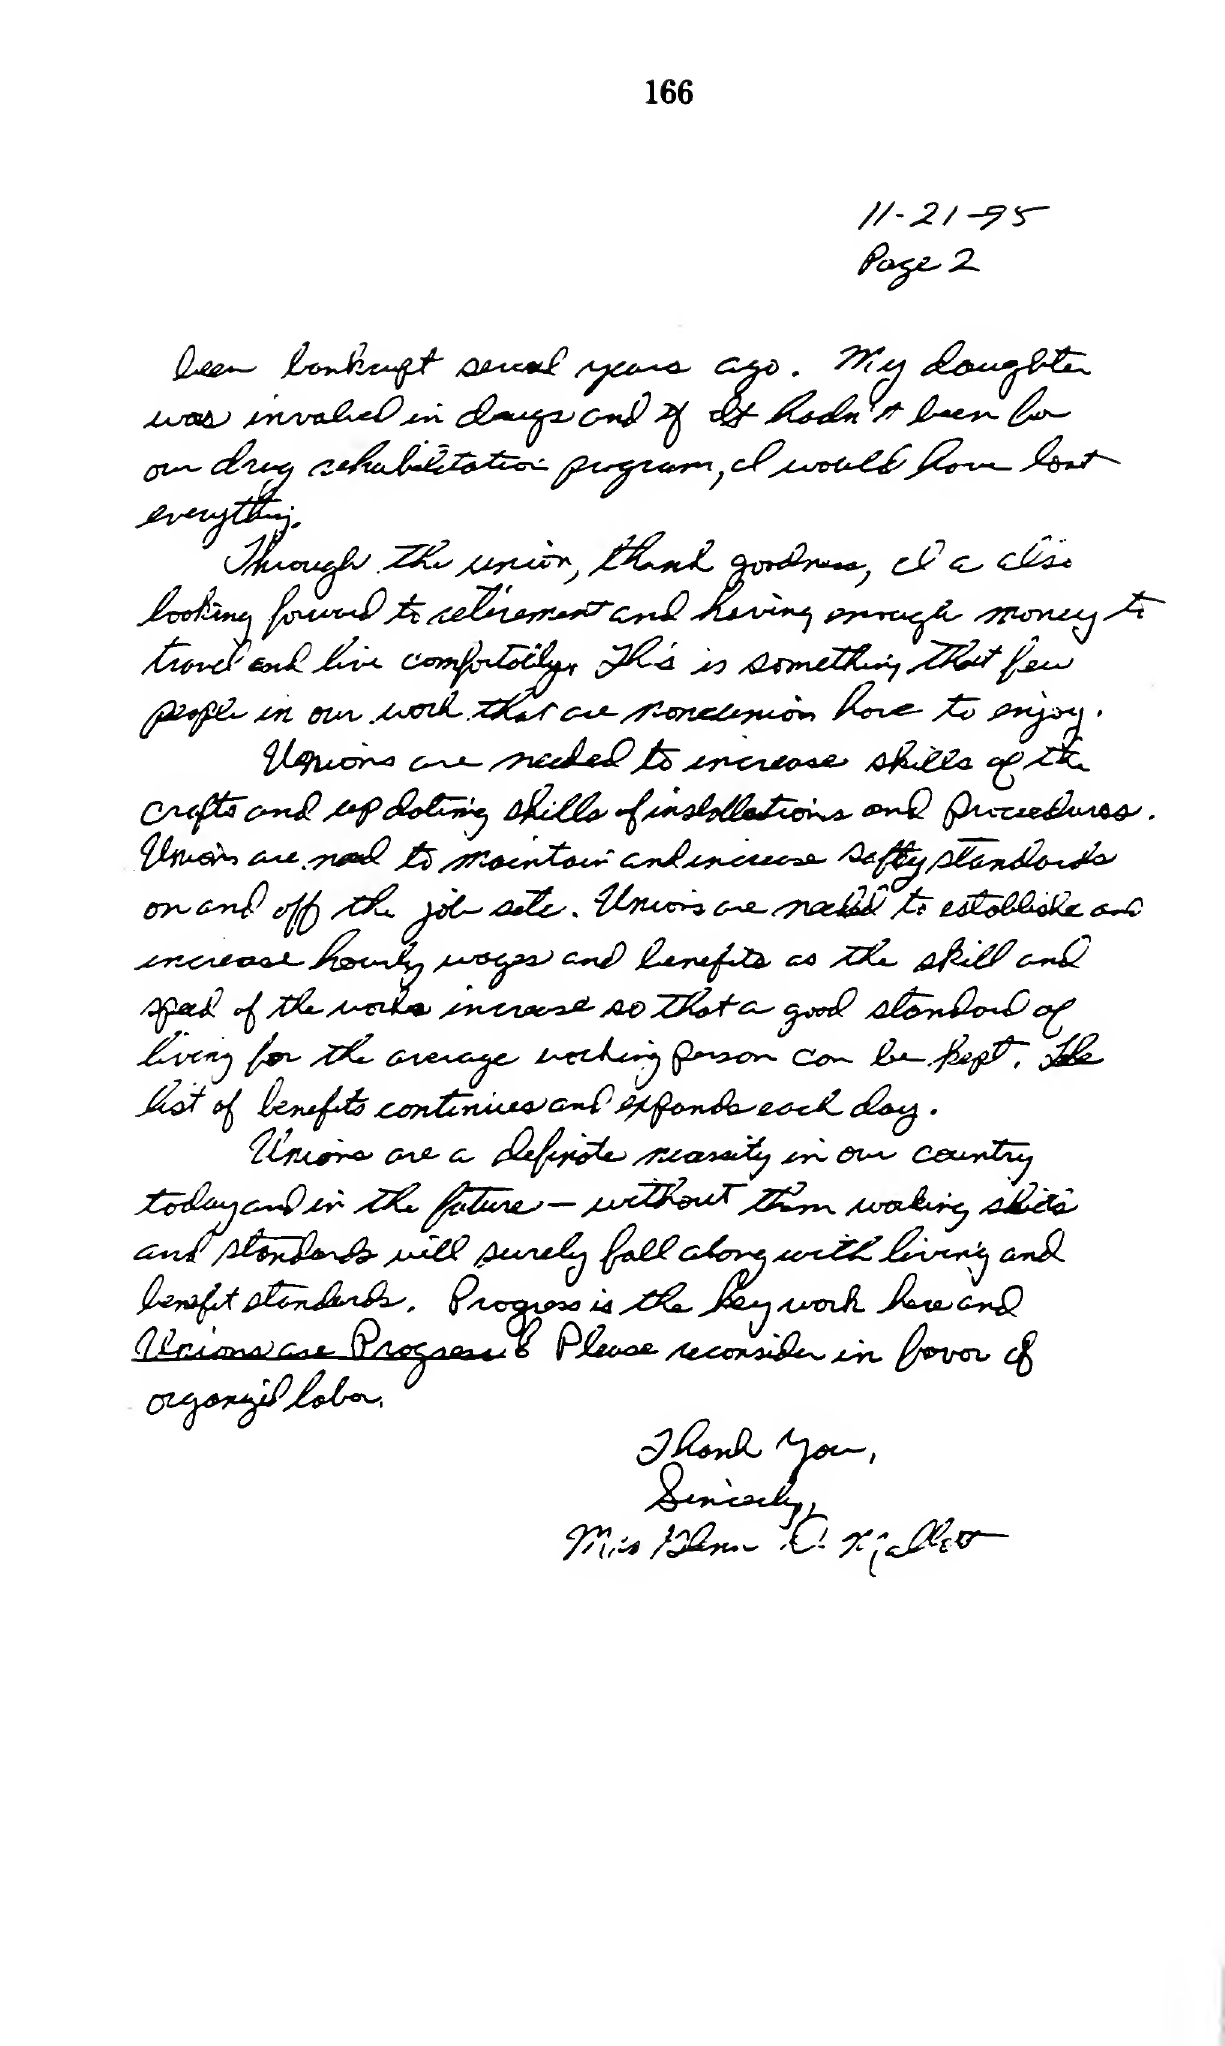 166
11-21-95
Page 2
been bankrupt several years ago. My daughter
was involved in drugs and if it hadn't been for
our drug rehabilitation program, I would have lost
everything.
Through the union, thank goodness, I a also
looking forward to retirement and having enough money to
travel and live comfortably. This is something that few
people in our work that are nonunion have to enjoy.
Unions are needed to increase skills of the
crafts and updating skills of installations and procedures.
Unions are need to maintain and increase safty standards
on and off the job site. Unions are needed to establishe and
increase hourly wages and benefits as the skill and
speed of the works increase so that a good standard of
living for the average working person can be kept. The
list of benefits continues and expands each day.
Unions are a definite necessity in our country
today and in the future — without them working
and standards will surely fall along with living and
benefit standards. Progress is the key work here and
Unions are Progress! Please reconsider in favor of
organized labor.
Thank You,
Sincerely,